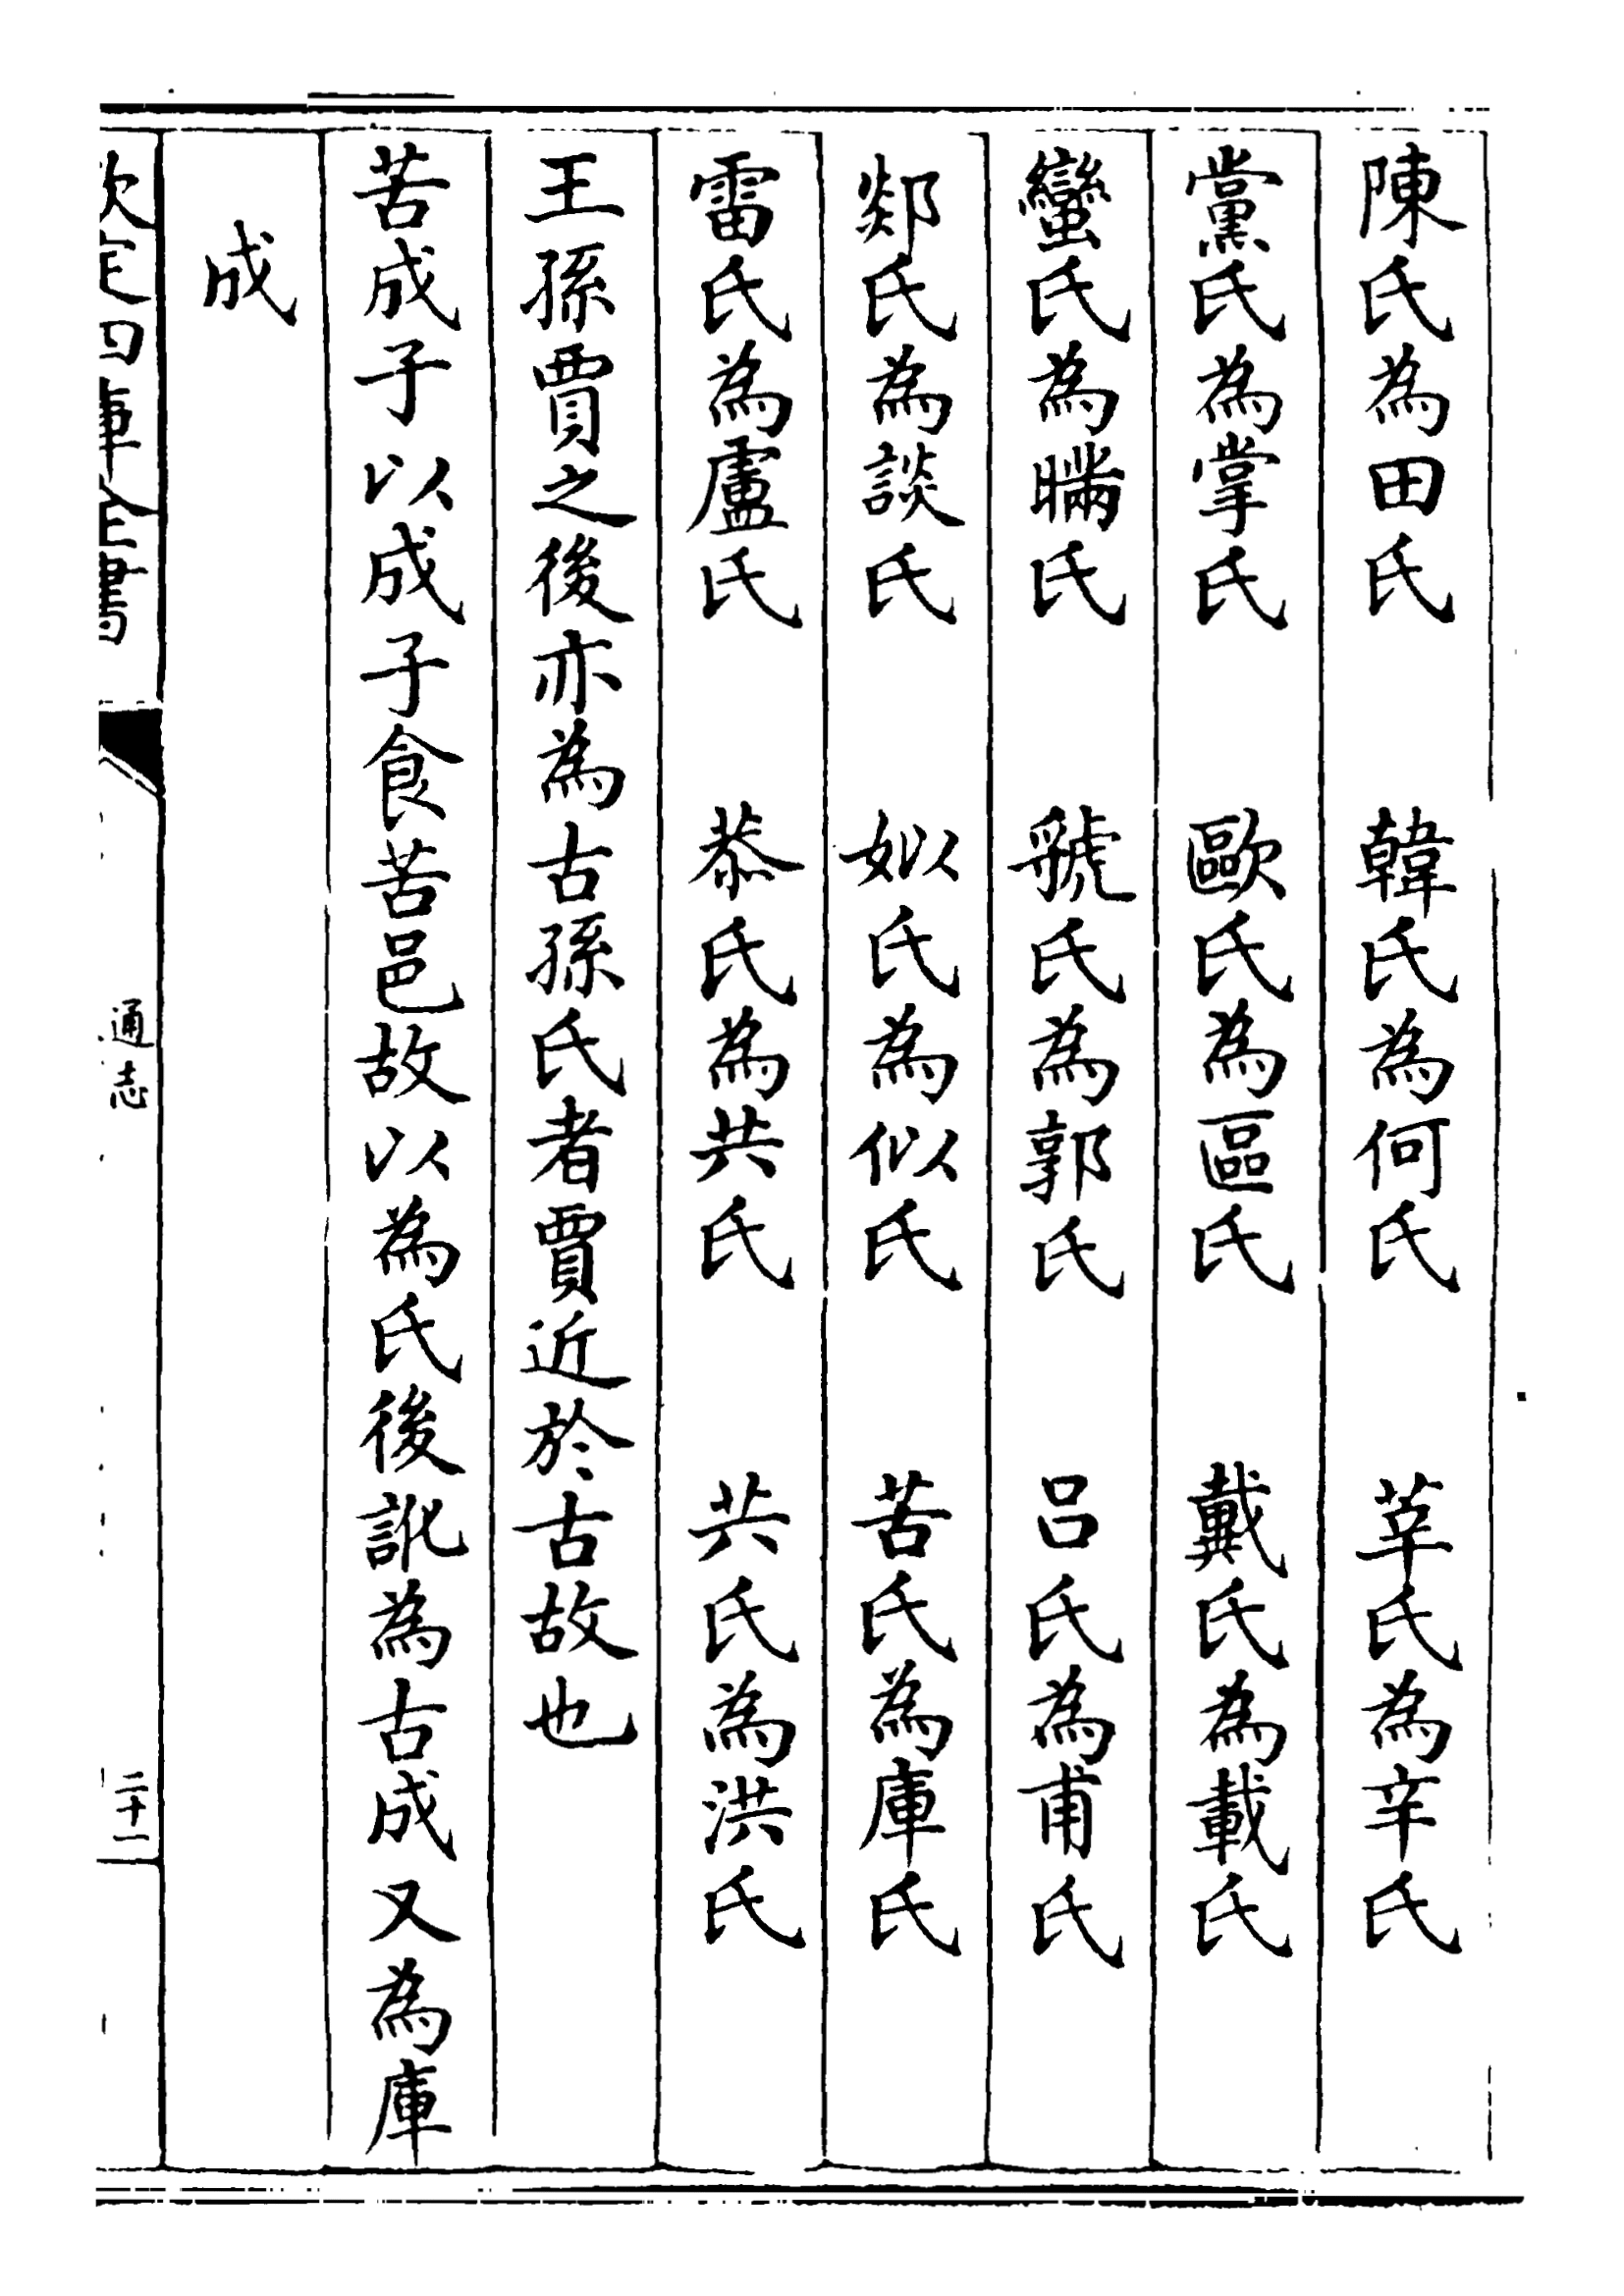 陳氏為田氏　韓氏為何氏　莘氏為辛氏
黨氏為掌氏　歐氏為區氏　戴氏為載氏
蠻氏為㬼氏　虢氏為郭氏　呂氏為甫氏
郯氏為談氏　姒氏為似氏　苦氏為庫氏
雷氏為盧氏　恭氏為共氏　共氏為洪氏
王孫賈之後亦為古孫氏者賈近於古故也
苦成子以成子食苦邑故以為氏後訛為古成又為庫
成
欽定四庫全書
通志
二十一